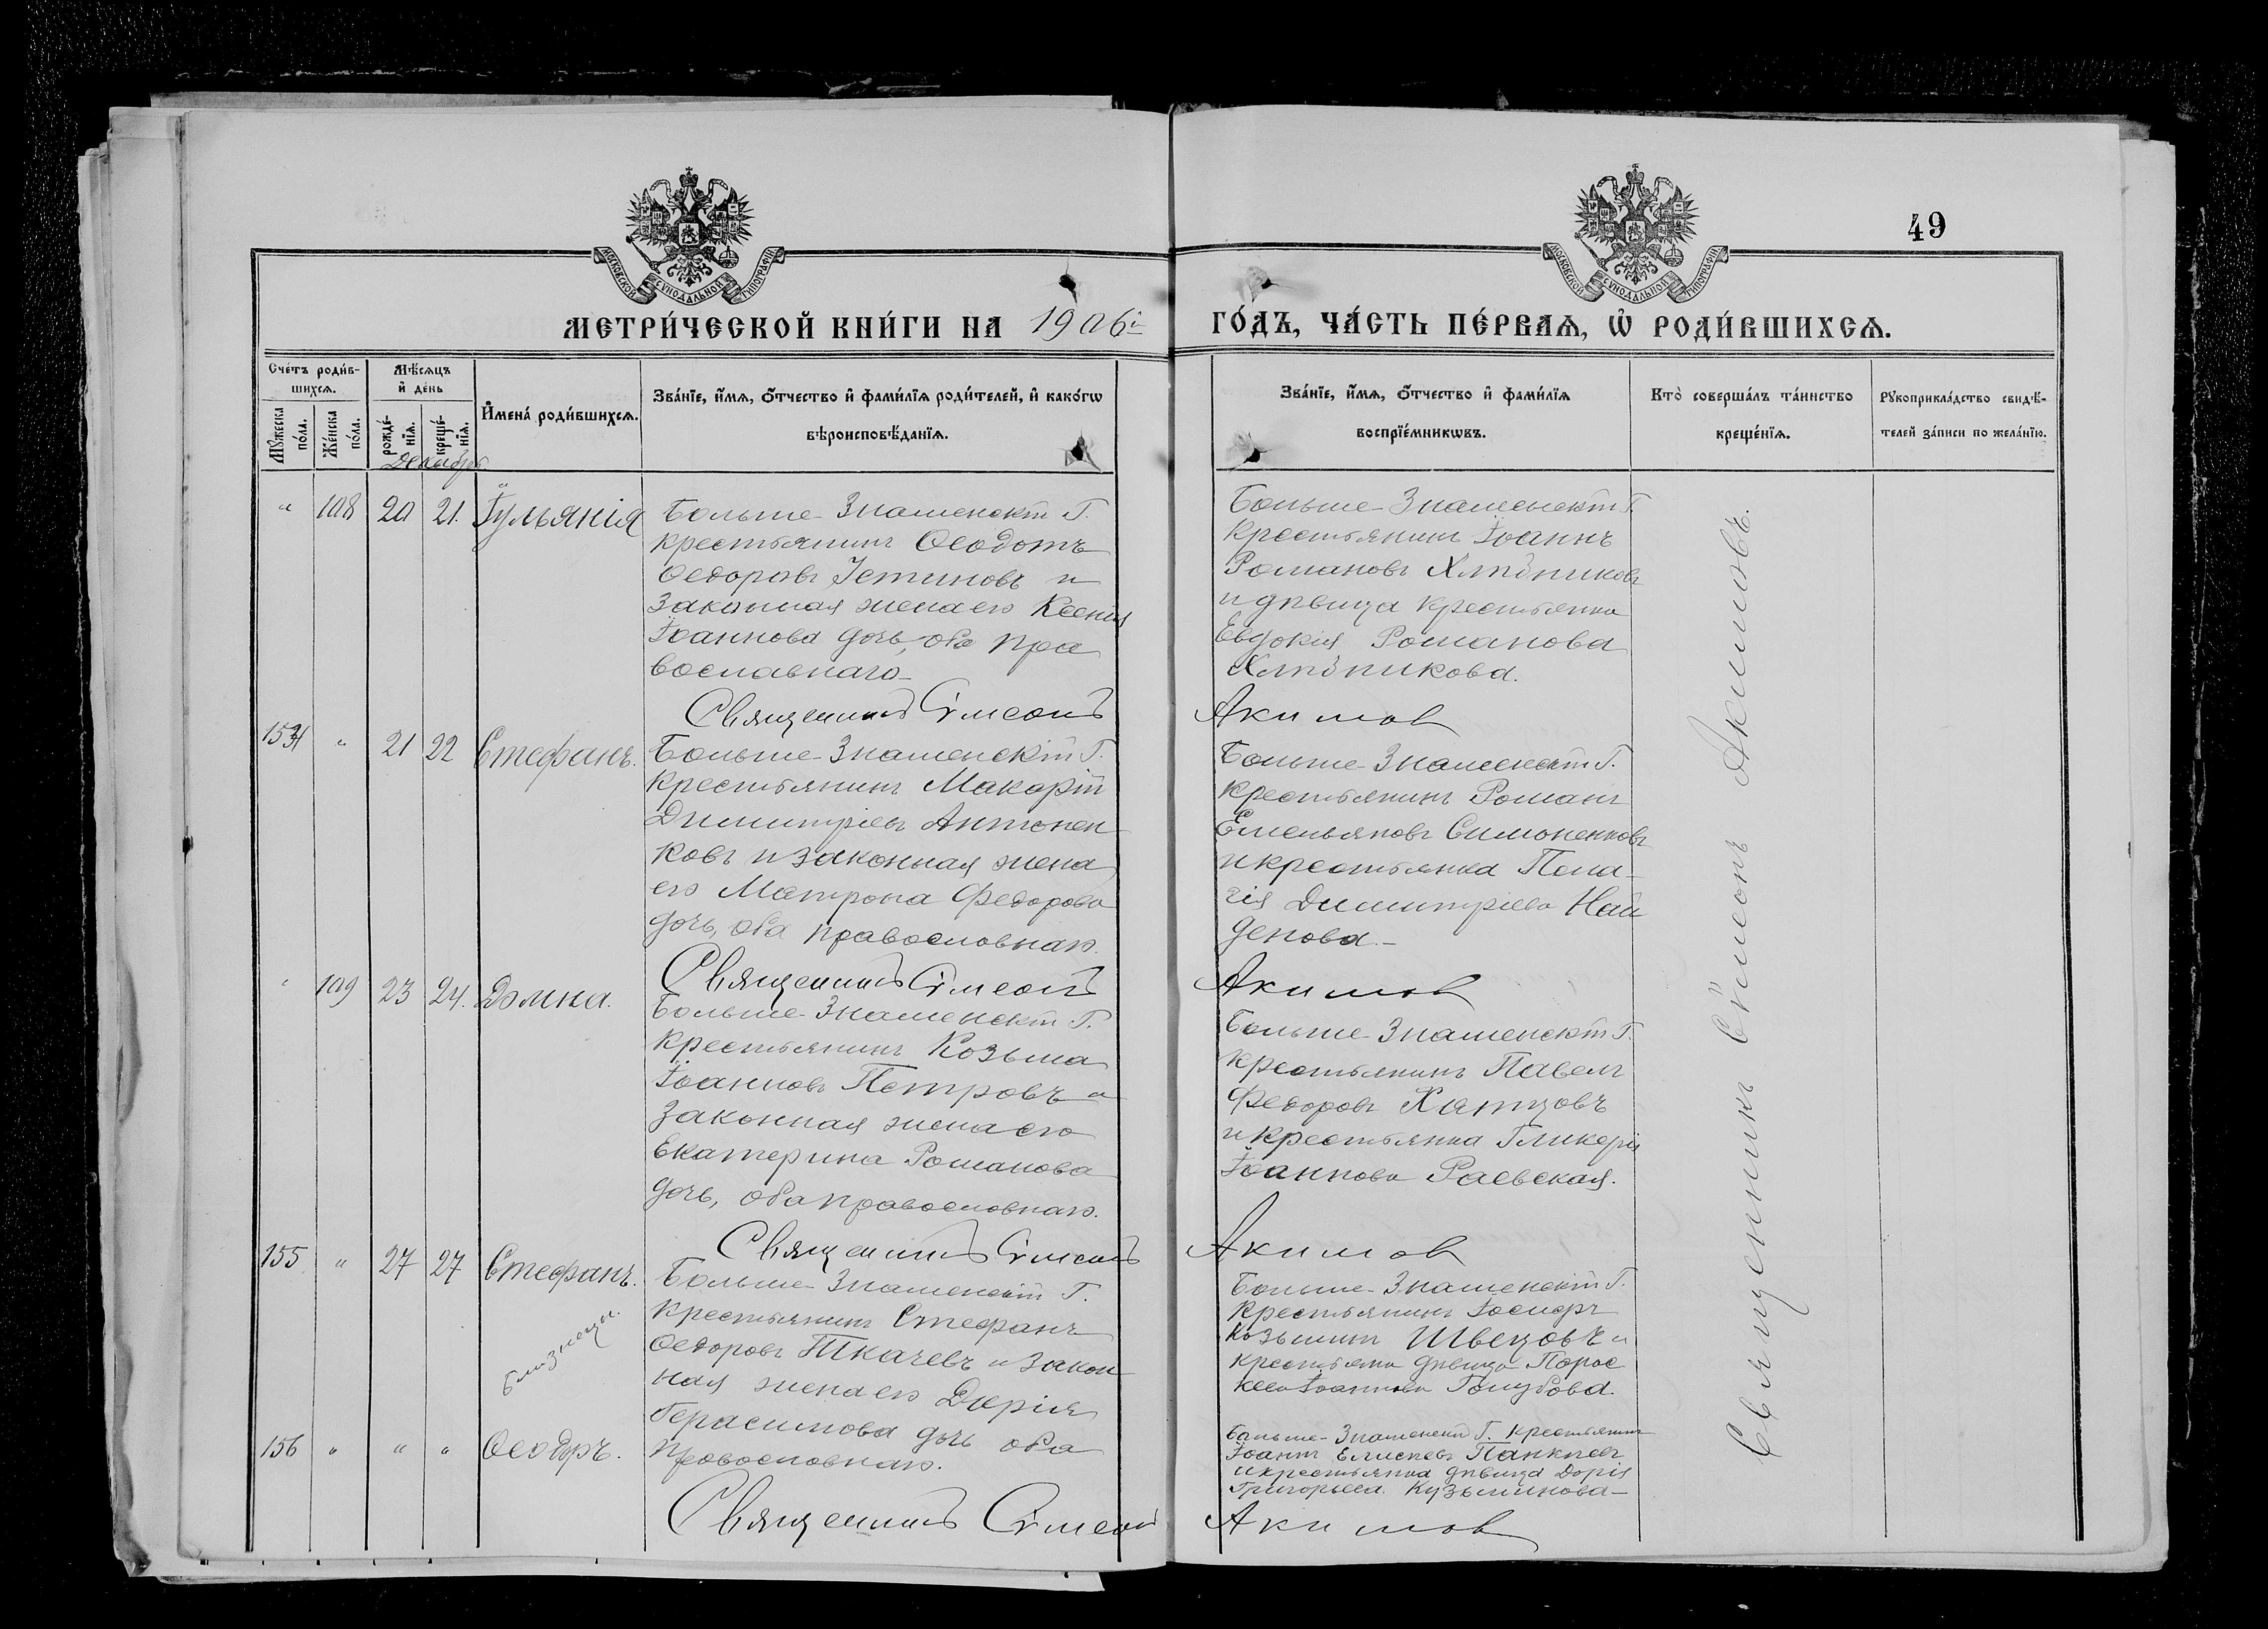 49
МОСКОВСКОЙ СѴНОДАЛЬНОЙ ТИПОГРАФІИ
МОСКОВСКОЙ СѴНОДАЛЬНОЙ ТИПОГРАФІИ
МЕТРИ́ЧЕСКОЙ КНИ́ГИ НА 1906й
ГО́ДЪ, ЧА́СТЬ ПЕ́РВАѦ, Ѡ҆ РОДИ́ВШИХСѦ.
Сче́тъ роди́в-
шихсѧ.
Мꙋ́жеска по́ла.
Же́нска по́ла.
Мѣ́сѧцъ
и҆ де́нь
рожде́-нїѧ.
креще́-нїѧ.
И҆мена̀ роди́вшихсѧ.
Зва́нїе, и҆́мѧ, ѻ҆́тчество и҆ фами́лїѧ роди́телей, и҆ како́гѡ
вѣроисповѣ́данїѧ.
Зва́нїе, и҆́мѧ, ѻ҆́тчество и҆ фами́лїѧ
воспрїе́мникѡвъ.
Кто̀ соверша́лъ та́инство
креще́нїѧ.
Рꙋкоприкла́дство свидѣ́-
телей за́писи по жела́нїю.
Декабрь
" 108 20 21. Іульянія
Больше-Знаменскій Г.
крестьянинъ Ѳеодотъ
Ѳедоровъ Устиновъ и
законная жена его Ксенія
Іоаннова дочь, оба пра
вославнаго
Больше-Знаменскій Г.
крестьянинъ Іоаннъ
Романовъ Хлѣбниковъ
и дѣвица крестьянка
Евдокія Романова
Хлѣбникова.
Священникъ Сѵмеонъ Акимов
" 21 22 Стефанъ.
Больше-Знаменскій Г.
крестьянинъ Макарій
Димитріевъ Антонен
ковъ и законная жена
его Матрона Федорова
дочь, оба православнаго.
Больше-Знаменскій Г.
крестьянинъ Романъ
Емельяновъ Симоненковъ
и крестьянка Пела-
гія Димитріева Най
денова.-
Священникъ Сѵмеонъ Акимов
" 109 23 24. Домна.
Больше-Знаменскій Г.
крестьянинъ Козьма
Іоанновъ Петровъ и
законная жена его
Екатерина Романова
дочь, оба православнаго.
Больше-Знаменскій Г.
крестьянинъ Павелъ
Федоровъ
и крестьянка Гликерія
Іоаннова Раевская.
Священникъ Сѵмеонъ Акимов
155 " 27 27 Стефанъ.
близнецы.
Больше-Знаменскій Г.
крестьянинъ Стефанъ
Ѳедоровъ Ткачевъ и закон
ная жена его Дарія
Герасимова дочь оба
православнаго.
Больше-Знаменскій Г.
крестьянинъ Іосифъ
Козьминъ Швецовъ и
дѣвица Парас
Іоаннова Голубова.
156 " " " Ѳеодоръ.
Больше-Знаменскій Г. крестьянинъ
Іоаннъ Елисеевъ
и крестьянка дѣвица Дарія
Григорьева Кузьминова-
Священникъ Сѵмеонъ Акимов
Священникъ Сѵмеонъ Акимовъ.